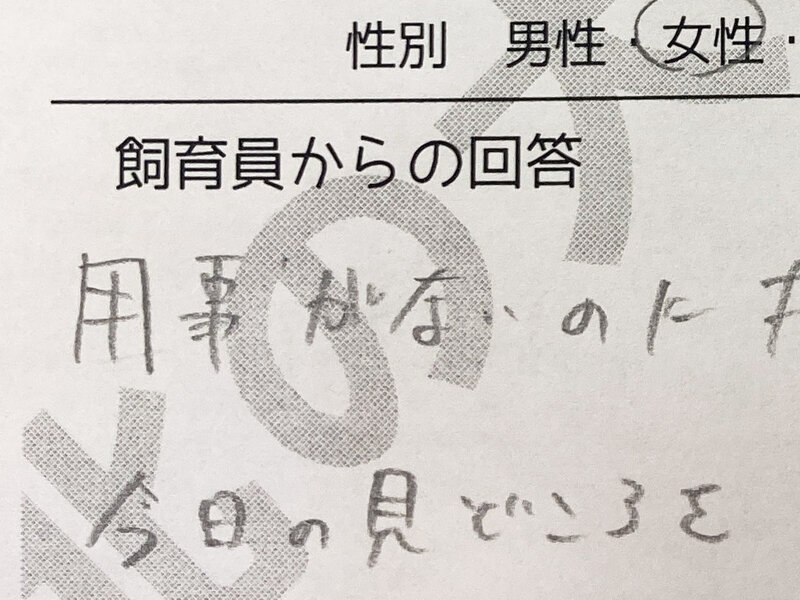 性別 男性・女性・
飼育員からの回答
用事がないのに
今日の見どころを